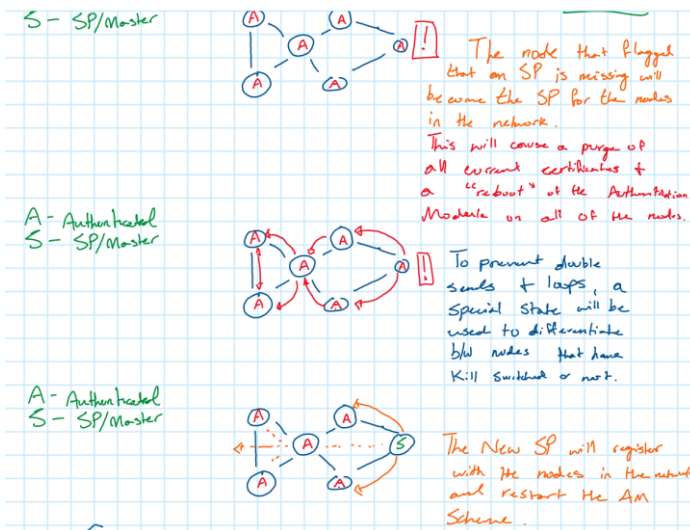 S - SP/Master
A
A
A
A
A
A
!
The node that flagged
that an SP is missing will
become the SP for the nodes
in the network.
This will cause a purge of
all current certificates +
a "reboot" of the Authentication
Module on all of the nodes.
A - Authenticated
S - SP/Master
A
A
A
A
A
A
!
To prevent double
sends + loops, a
special state will be
used to differentiate
b/w nodes that have
Kill Switched or not.
A - Authenticated
S - SP/Master
A
A
A
S
A
A
The New SP will register
with the nodes in the network
and restart the AM
Scheme.